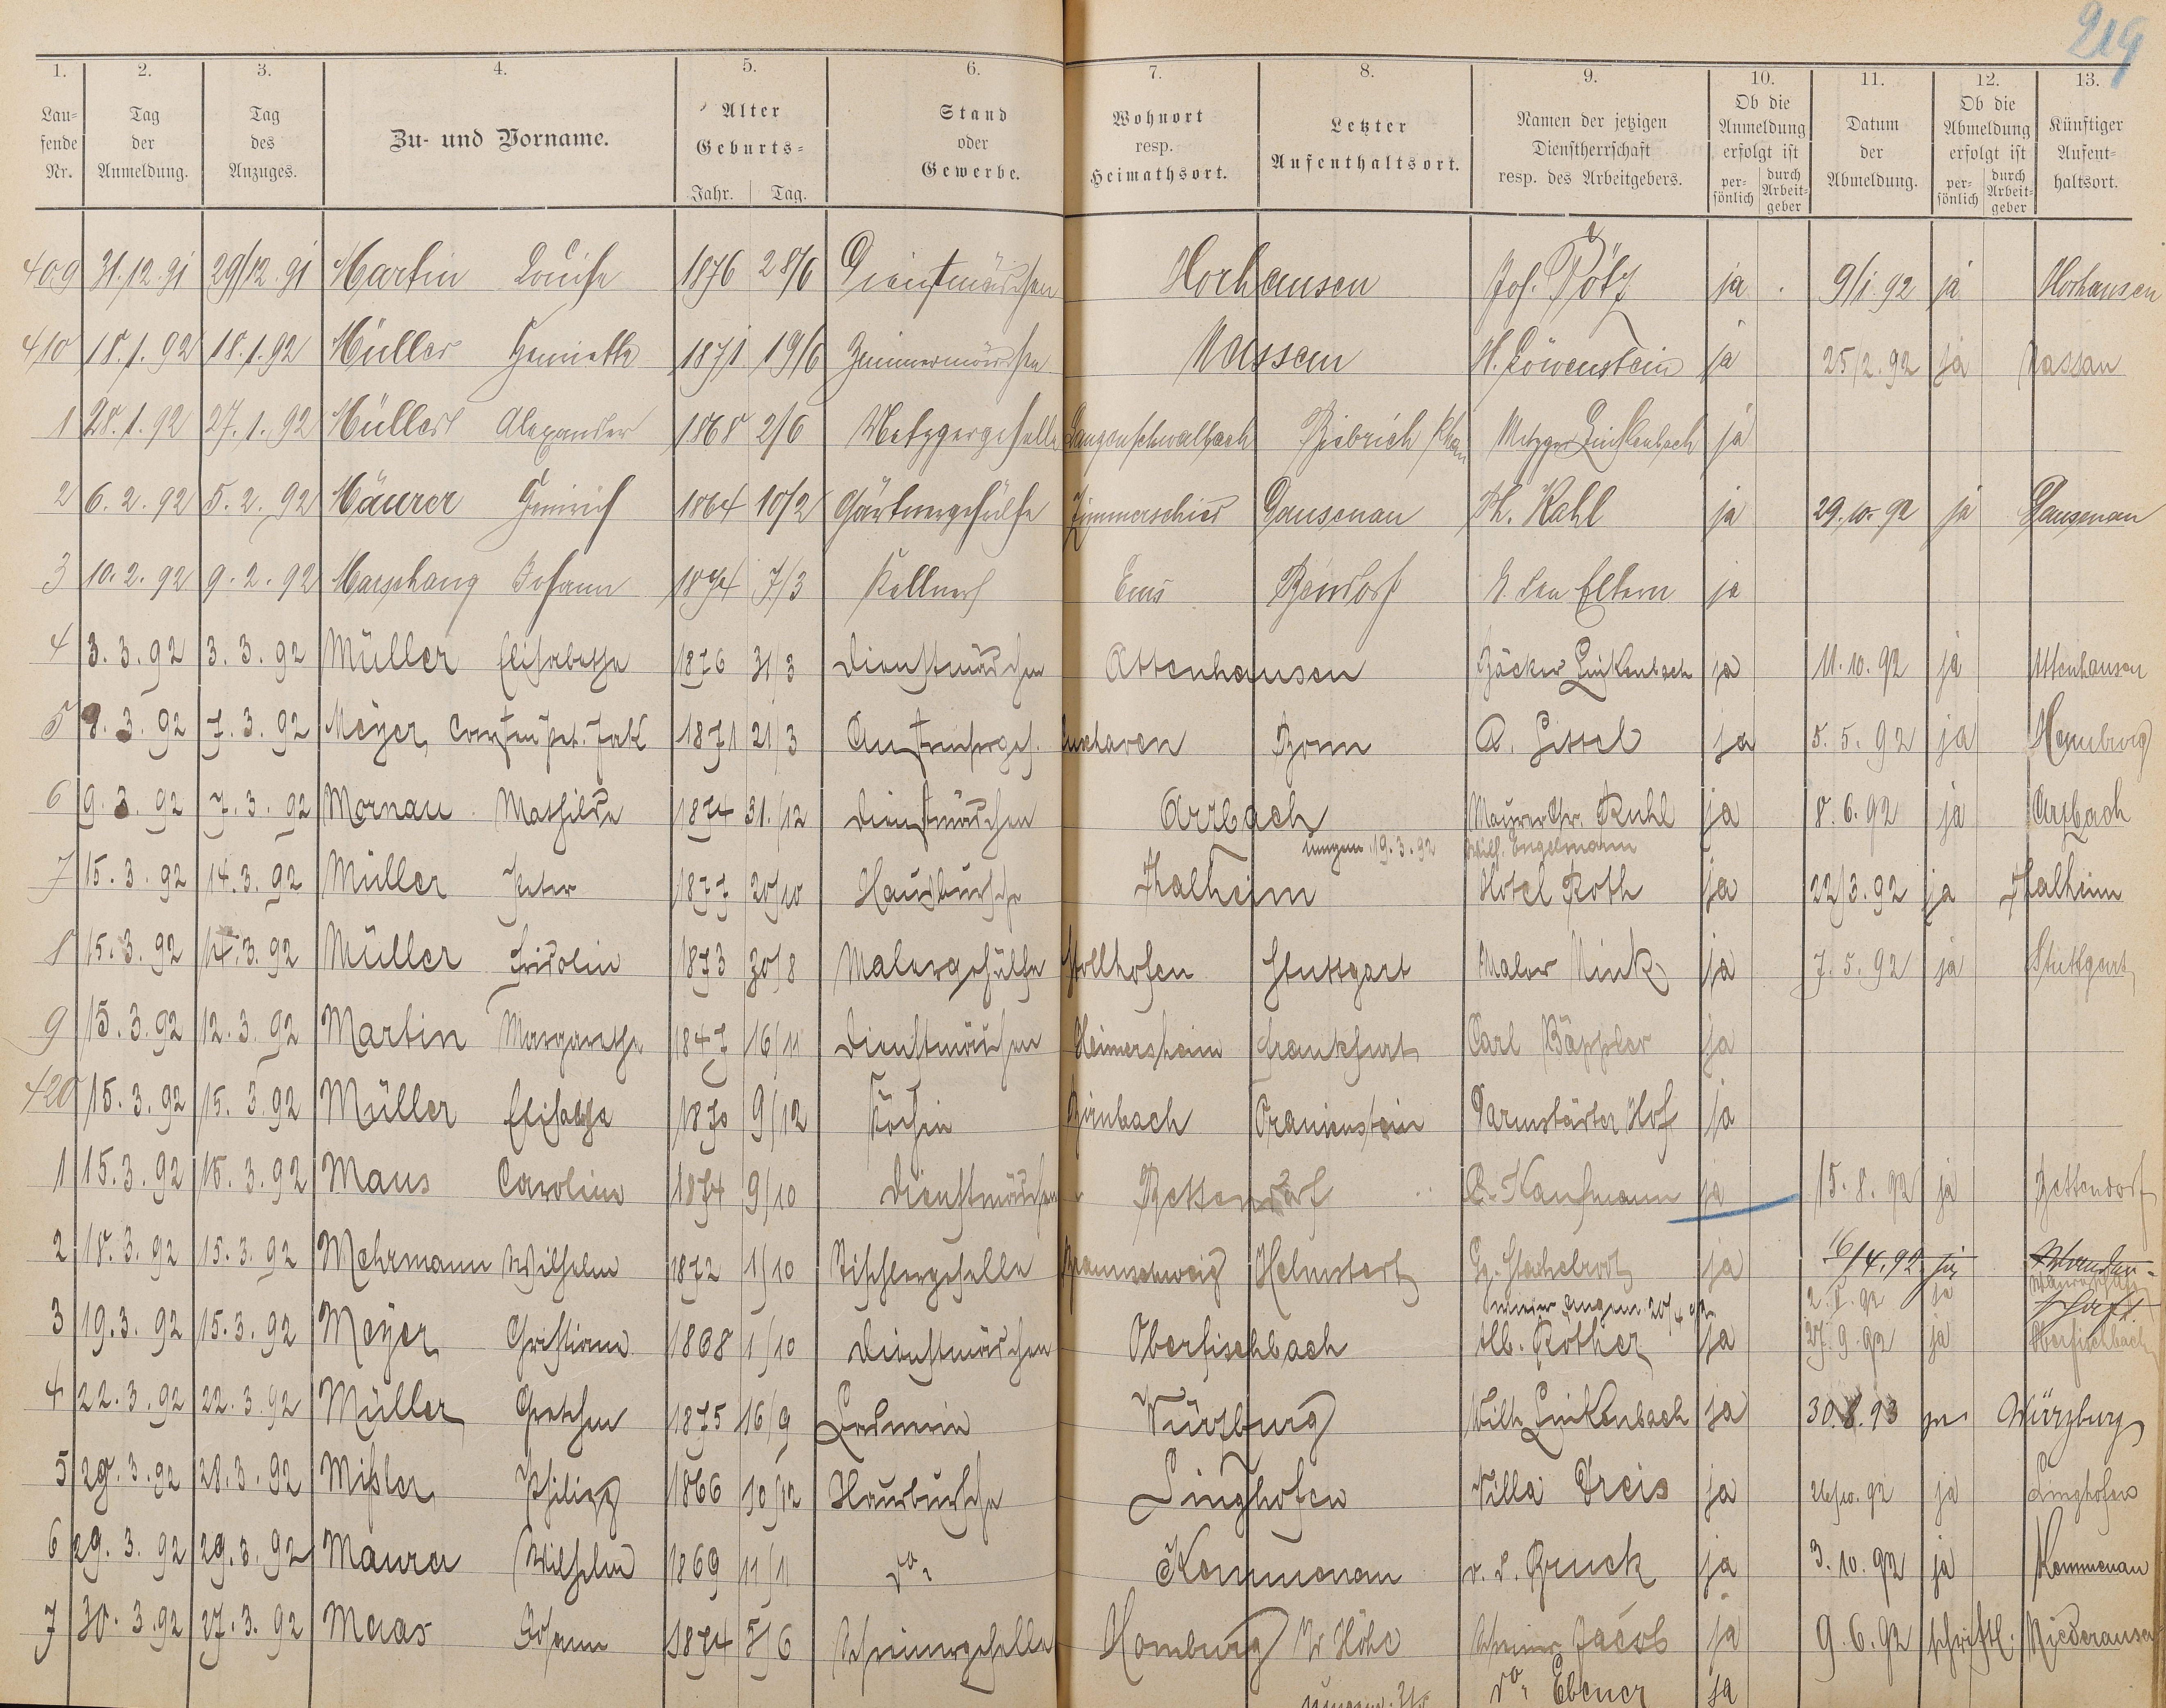 219
1. 2. 3. 4. 5. 6. 7. 8. 9. 10. 11. 12. 13.
Lau=fende Nr. | Tag der Anmeldung. | Tag des Anzuges. | Zu- und Vorname. | Alter Geburts= Jahr. Tag. | Stand oder Gewerbe. | Wohnort resp. Heimathsort. | Letzter Aufenthaltsort. | Namen der jetzigen Dienstherrschaft resp. des Arbeitgebers. | Ob die Anmeldung erfolgt ist per=sönlich durch Arbeit=geber | Datum der Abmeldung. | Ob die Abmeldung erfolgt ist per=sönlich durch Arbeit=geber | Künftiger Aufent=haltsort.
409 31.12.91 29/12.91 Martin Louise 1876 28/6 Dienstmädchen Horhausen Jos. Pötz ja 9/1.92 ja Horhausen
410 18.1.92 18.1.92 Müller Henriette 1871 19/6 Zimmermädchen Nassau H. Löwenstein ja 25/2.92 ja Nassau
1 28.1.92 27.1.92 Müller Alexander 1868 2/6 Metzgergeselle Langenschwalbach Biebrich Metzger Linkenbach ja
2 6.2.92 5.2.92 Mäurer Heinrich 1864 10/2 Gärtnergehülfe Zimmerschied Dausenau Ph. Kahl ja 29.10.92 ja Dausenau
3 10.2.92 9.2.92 Marschang Johann 1874 7/3 Kellner Ems Bendorf b. den Eltern ja
4 3.3.92 3.3.92 Müller Elisabetha 1876 31/3 Dienstmädchen Attenhausen Bäcker Linkenbach ja 11.10.92 ja Attenhausen
5 8.3.92 7.3.92 Meyer, 1871 21/3 Cuxhaven Bonn A. ja 5.5.92 ja Hamburg
6 9.3.92 7.3.92 Mornau Mathilde 1874 31.12 Dienstmädchen Arzbach Maurer Chr. Kuhl ja 8.6.92 ja Arzbach
umgem 19.3.92 Wilh. Engelmann
7 15.3.92 14.3.92 Müller Peter 1877 20/10 Hausbursche Thalheim Hotel Roth ja 22/3.92 ja Thalheim
8 15.3.92 14.3.92 Müller Fridolin 1873 30/8 Malergehülfe Stollhofen Stuttgart Maler Nink ja 7.5.92 ja Stuttgart
9 15.3.92 12.3.92 Martin Margarethe 1847 16/11 Dienstmädchen Heimersheim Frankfurt Carl Bäppler ja
420 15.3.92 15.3.92 Müller Elisabetha 1870 9/12 Köchin Birnbach Oranienstein Darmstädter Hof ja
1 15.3.92 15.3.92 Maus Carolina 1874 9/10 Dienstmädchen Bettendorf Kaufmann ja 15.8.92 ja Bettendorf
2 18.3.92 15.3.92 Mehrmann Wilhelm 1872 1/10 Tischlergeselle Braunschweig Helmstedt ja 16/4.92 ja Wander-
umgem 20/4 92 2.8.92 ja schaft
3 19.3.92 15.3.92 Meyer Christiane 1868 1/10 Dienstmädchen Oberfischbach Alb. Rother ja 27.9.92 ja Oberfischbach
4 22.3.92 22.3.92 Müller Gretchen 1875 16/9 Ladnerin Würzburg Wilh. Linkenbach ja 30.8.93 Würzburg
5 29.3.92 28.3.92 Mißler Philipp 1866 10/12 Hausbursche Singhofen Villa Dreis ja 26/10.92 ja Singhofen
6 29.3.92 29.3.92 Maurer Wilhelm 1869 11/11 do. Kemmenau v. d. Bruck ja 3.10.92 ja Kemmenau
7 30.3.92 27.3.92 Maas Johann 1874 5/6 Schreinergeselle Homburg v. d. Höhe Schreiner Jacob ja 9.6.92 schriftl. Niederausen
do. Ebener ja